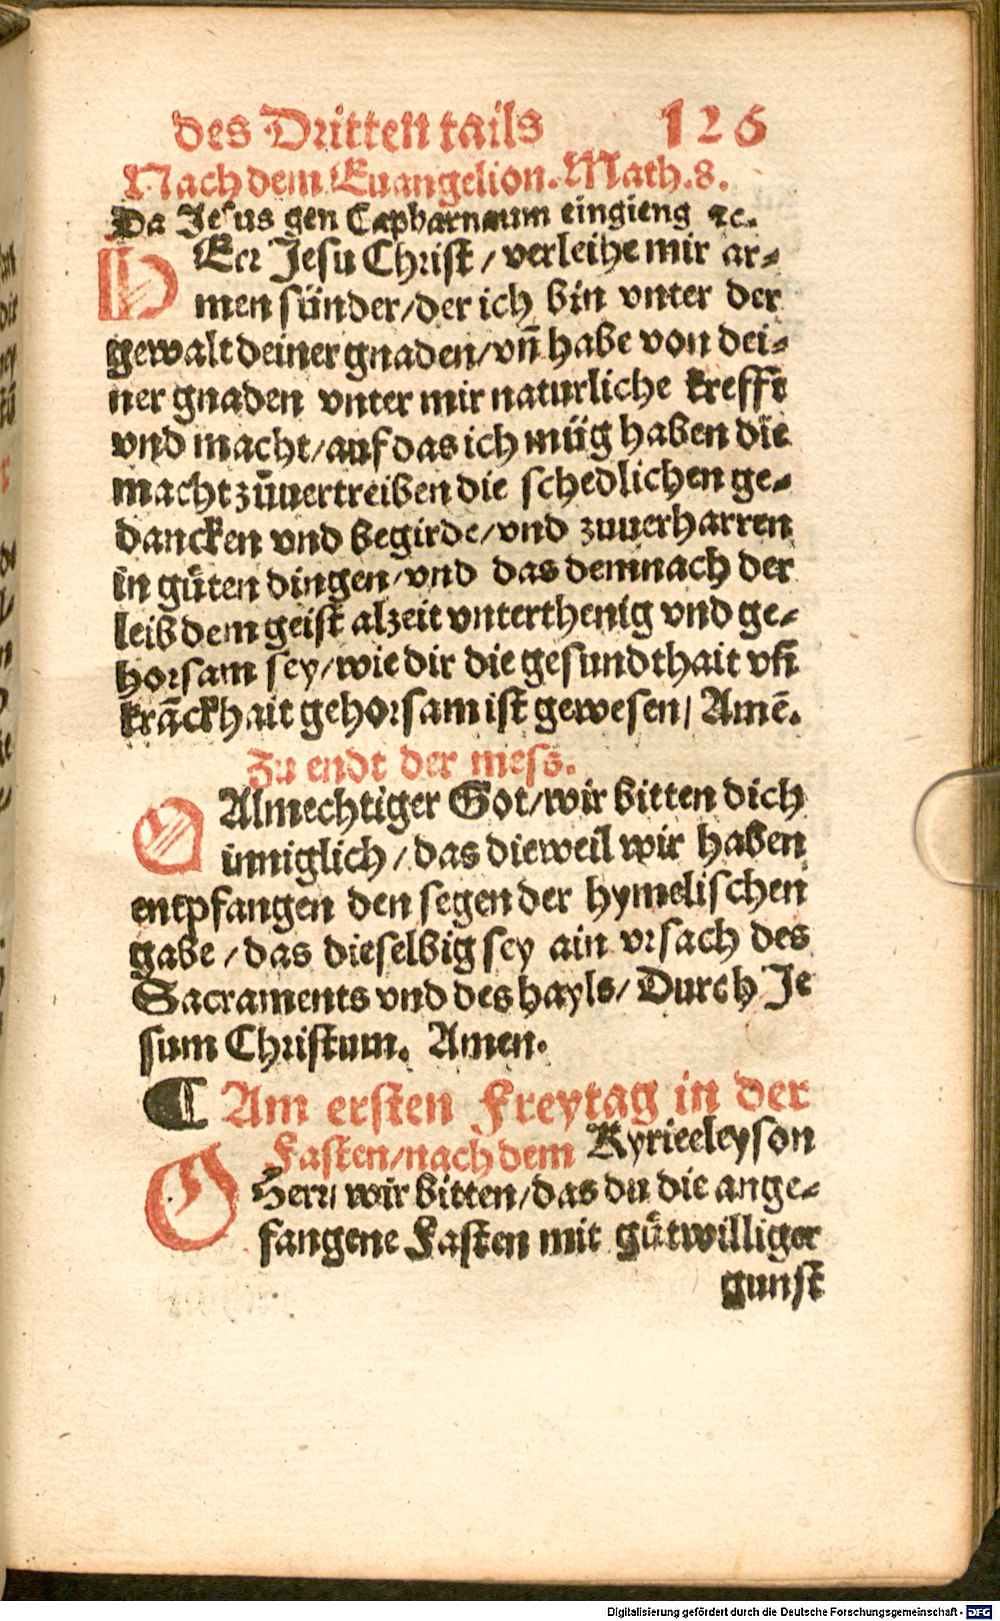 des Dritten tails 126
Nach dem Euangelion. Math. 8.
Da Jesus gen Capharnaum eingieng ꝛc.
HErr Jesu Christ / verleihe mir ar⸗
men sünder / der ich bin vnter der
gewalt deiner gnaden / vñ habe von dei⸗
ner gnaden vnter mir naturliche krefft
vnd macht / auf das ich müg haben die
macht zůuertreiben die schedlichen ge⸗
dancken vnd begirde / vnd zuuerharren
in gůten dingen / vnd das demnach der
leib dem geist alzeit vnterthenig vnd ge⸗
horsam sey / wie dir die gesundthait vñ
kranckhait gehorsam ist gewesen / Amē.
Zu endt der mess.
O Almechtiger Got / wir bitten dich
inniglich / das dieweil wir haben
entpfangen den segen der hymelischen
gabe / das dieselbig sey ain vrsach des
Sacraments vnd des hayls / Durch Je
sum Christum. Amen.
¶ Am ersten Freytag in der
Fasten / nach dem Kyrieeleyson
O Herr / wir bitten / das du die ange⸗
fangene Fasten mit gůtwilliger
gunst
Digitalisierung gefördert durch die Deutsche Forschungsgemeinschaft - DFG